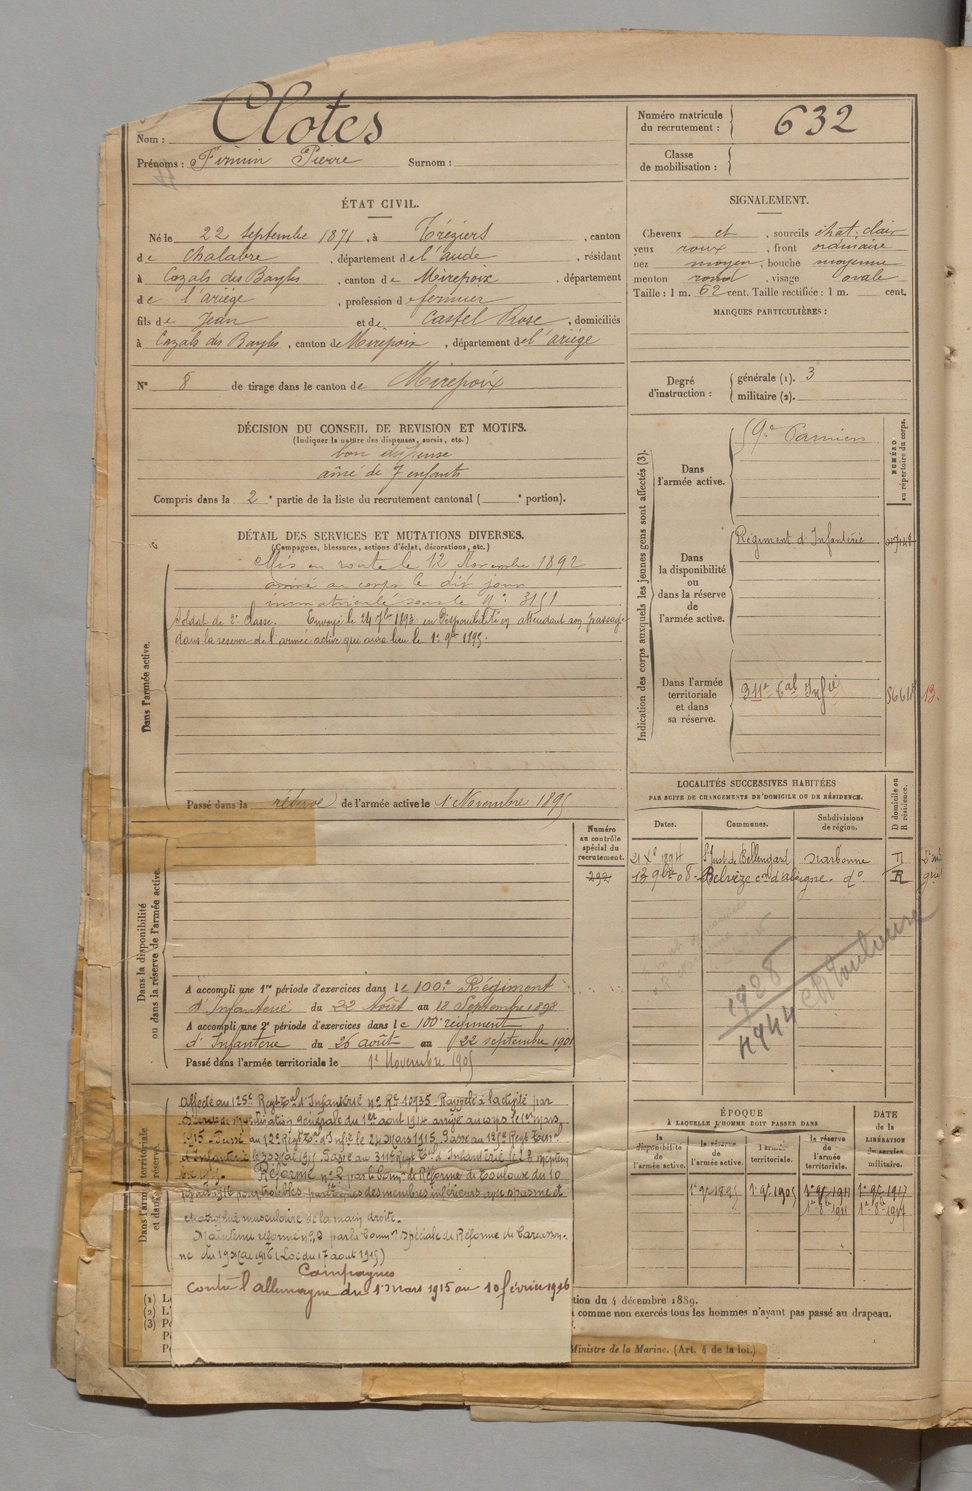 Nom : Clotes
Prénoms : Firmin Pierre Surnom :
Numéro matricule du recrutement : 632
Classe de mobilisation :
ÉTAT CIVIL.
Né le 22 septembre 1871, à Tréziers, canton
de Chalabre, département de l'aude, résidant
à Cazals des Bayles, canton de Mirepoix, département
de l'ariège, profession de fermier
fils de Jean et de Castel Rose, domiciliés
à Cazals des Bayles, canton de Mirepoix, département de l'ariège
N° 8 de tirage dans le canton de Mirepoix
SIGNALEMENT.
Cheveux et, sourcils chat. clair
yeux roux, front ordinaire
nez moyen, bouche moyenne
menton rond, visage ovale
Taille : 1 m. 62 cent. Taille rectifiée : 1 m. cent.
MARQUES PARTICULIÈRES :
Degré d'instruction : générale (1). 3
militaire (2).
DÉCISION DU CONSEIL DE REVISION ET MOTIFS.
(Indiquer la nature des dispenses, sursis, etc.)
bon dispense
aîné de 7 enfants
Compris dans la 2e partie de la liste du recrutement cantonal ( e portion).
DÉTAIL DES SERVICES ET MUTATIONS DIVERSES.
(Campagnes, blessures, actions d'éclat, décorations, etc.)
Dans l'armée active.
Mis en route le 12 Novembre 1892
arrivé au corps le dit jour
immatriculé sous le N°
Soldat de 2e classe. Envoyé le 24 7bre 1893 en disponibilité en attendant son passage
dans la réserve de l'armée active qui aura lieu le 1er 9bre 1895.
Passé dans la réserve de l'armée active le 1 Novembre 1895
Indication des corps auxquels les jeunes gens sont affectés (3).
NUMÉRO au répertoire du corps.
Dans l'armée active.
Pamiers
Dans la disponibilité ou dans la réserve de l'armée active.
Régiment d'Infanterie
Dans l'armée territoriale et dans sa réserve.
311e Infie
13.
LOCALITÉS SUCCESSIVES HABITÉES
PAR SUITE DE CHANGEMENTS DE DOMICILE OU DE RÉSIDENCE.
Dates. Communes. Subdivisions de région. D domicile ou R résidence.
21 Xe 1894 St Just de Bellengard Narbonne D
13 9bre 08 Belvèze d'alaigne. do. R
1928
Toulouse
Dans la disponibilité ou dans la réserve de l'armée active.
Numéro au contrôle spécial du recrutement.
292
A accompli une 1re période d'exercices dans le 100e Régiment
d'Infanterie du 22 Août au 18 Septembre 1898
A accompli une 2e période d'exercices dans le 100e régiment
d'Infanterie du 26 août au 22 septembre 1901
Passé dans l'armée territoriale le 1er Novembre 1905
Dans l'armée territoriale et dans sa réserve.
Affecté au 125e Régt Tal d'Infanterie no Re 10935 Rappelé à l'activité par
décret de mobilisation générale du 1er aout 1914 arrivé au corps le 1er mars
1915 Passé au 12e Régt Tal d'Infie le 24 Mars 1915
Passé au 311e Régt Tal d'Infanterie le
Réformé no 2 par la Comm. de Réforme de Toulouse du 10
des membres inférieurs avec spasme et
et atrophie musculaire de la main droite.
Maintenu réformé no 2 par la Common spéciale de Réforme de Carcasson-
ne du 19 Mai 1916 (Loi du 17 aout 1915)
Campagnes
contre l'allemagne du 1er mars 1915 au 10 février 1916
ÉPOQUE
À LAQUELLE L'HOMME DOIT PASSER DANS
DATE de la LIBÉRATION du service militaire.
la disponibilité de l'armée active. la réserve de l'armée active. l'armée territoriale. la réserve de l'armée territoriale.
1er 9bre 1895 1er 9bre 1905 1er 9bre 1911 1er 9bre 1917
1er 8bre 1911 1er 8bre 1917
(1)
(2)
(3)
tion du 4 décembre 1889.
comme non exercés tous les hommes n'ayant pas passé au drapeau.
Ministre de la Marine. (Art. 4 de la loi.)